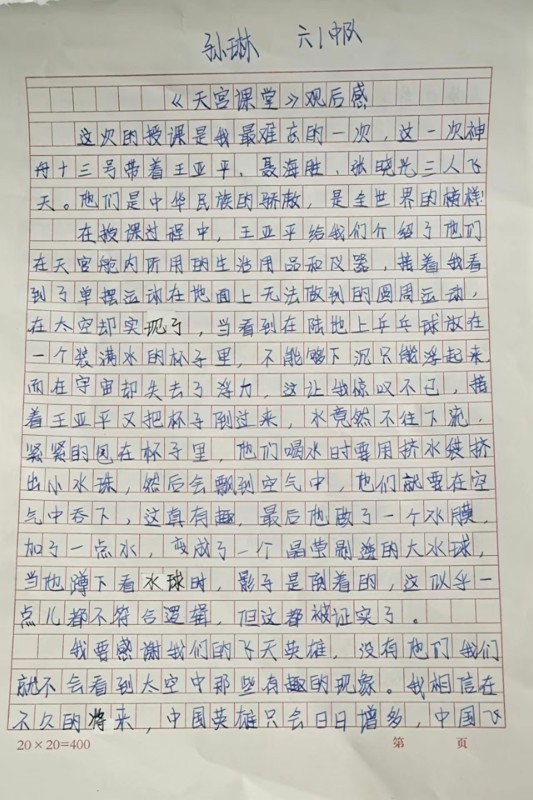 孙琳 六1中队
《天宫课堂》观后感
这次的授课是我最难忘的一次，这一次神
舟十三号带着王亚平、聂海胜、张晓光三人飞
天。他们是中华民族的骄傲，是全世界的榜样！
在授课过程中，王亚平给我们介绍了他们
在天宫舱内所用的生活用品和仪器，接着我看
到了单摆运动在地面上无法做到的圆周运动，
在太空却实现了，当看到在陆地上乒乓球放在
一个装满水的杯子里，不能够下沉只能浮起来，
而在宇宙却失去了浮力，这让我惊叹不已，接
着王亚平又把杯子倒过来，水竟然不往下流，
紧紧的包在杯子里，他们喝水时要用挤水袋挤
出小水珠，然后会飘到空气中，他们就要在空
气中吞下，这真有趣，最后他做了一个水膜，
加了一点水，变成了一个晶莹剔透的大水球，
当他蹲下看水球时，影子是倒着的，这似乎一
点儿都不符合逻辑，但这都被证实了。
我要感谢我们的飞天英雄，没有他们我们
就不会看到太空中那些有趣的现象。我相信在
不久的将来，中国英雄只会日日增多，中国飞
20×20=400 第 页